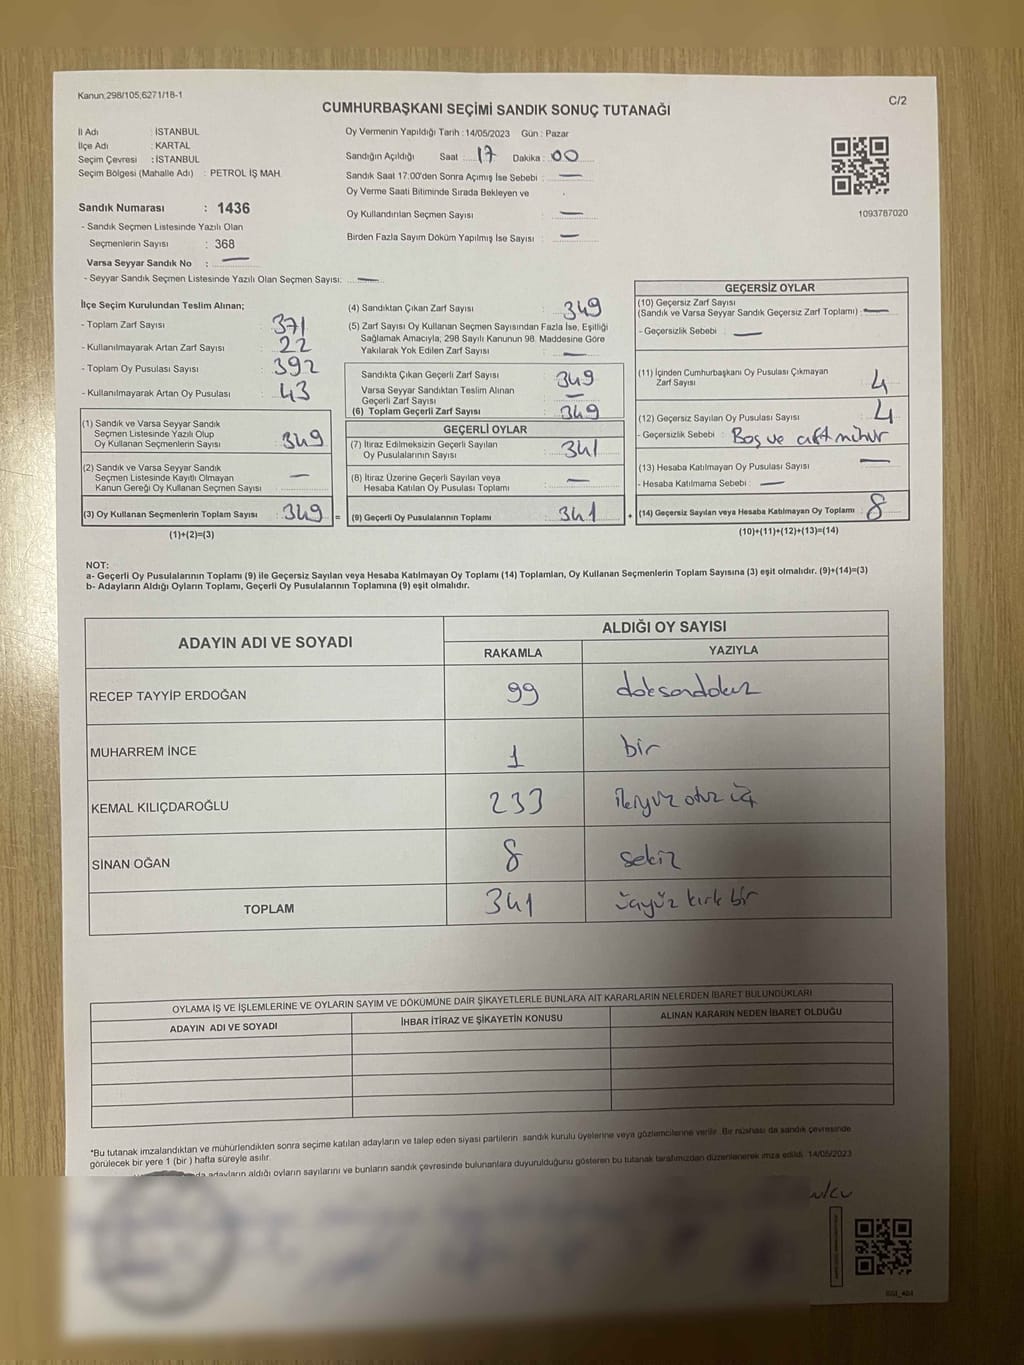 Kanun,298/105,6271/18-1
C/2
CUMHURBAŞKANI SEÇİMİ SANDIK SONUÇ TUTANAĞI
İl Adı : İSTANBUL
İlçe Adı : KARTAL
Seçim Çevresi : İSTANBUL
Seçim Bölgesi (Mahalle Adı) : PETROL İŞ MAH.
Sandık Numarası : 1436
- Sandık Seçmen Listesinde Yazılı Olan
Seçmenlerin Sayısı : 368
Varsa Seyyar Sandık No : —
- Seyyar Sandık Seçmen Listesinde Yazılı Olan Seçmen Sayısı: —
Oy Vermenin Yapıldığı Tarih : 14/05/2023 Gün : Pazar
Sandığın Açıldığı Saat : 17 Dakika : 00
Sandık Saat 17:00'den Sonra Açımış İse Sebebi : —
Oy Verme Saati Bitiminde Sırada Bekleyen ve
Oy Kullandırılan Seçmen Sayısı : —
Birden Fazla Sayım Döküm Yapılmış İse Sayısı : —
1093787020
İlçe Seçim Kurulundan Teslim Alınan;
- Toplam Zarf Sayısı : 371
- Kullanılmayarak Artan Zarf Sayısı : 22
- Toplam Oy Pusulası Sayısı : 392
- Kullanılmayarak Artan Oy Pusulası : 43
(1) Sandık ve Varsa Seyyar Sandık
Seçmen Listesinde Yazılı Olup
Oy Kullanan Seçmenlerin Sayısı : 349
(2) Sandık ve Varsa Seyyar Sandık
Seçmen Listesinde Kayıtlı Olmayan
Kanun Gereği Oy Kullanan Seçmen Sayısı : —
(3) Oy Kullanan Seçmenlerin Toplam Sayısı : 349
(1)+(2)=(3)
(4) Sandıktan Çıkan Zarf Sayısı : 349
(5) Zarf Sayısı Oy Kullanan Seçmen Sayısından Fazla İse, Eşitliği
Sağlamak Amacıyla; 298 Sayılı Kanunun 98. Maddesine Göre
Yakılarak Yok Edilen Zarf Sayısı : —
Sandıkta Çıkan Geçerli Zarf Sayısı : 349
Varsa Seyyar Sandıktan Teslim Alınan
Geçerli Zarf Sayısı : —
(6) Toplam Geçerli Zarf Sayısı : 349
GEÇERLİ OYLAR
(7) İtiraz Edilmeksizin Geçerli Sayılan
Oy Pusulalarının Sayısı : 341
(8) İtiraz Üzerine Geçerli Sayılan veya
Hesaba Katılan Oy Pusulası Toplamı : —
= (9) Geçerli Oy Pusulalarının Toplamı : 341
GEÇERSİZ OYLAR
(10) Geçersiz Zarf Sayısı
(Sandık ve Varsa Seyyar Sandık Geçersiz Zarf Toplamı) : —
- Geçersizlik Sebebi : —
(11) İçinden Cumhurbaşkanı Oy Pusulası Çıkmayan
Zarf Sayısı : 4
(12) Geçersiz Sayılan Oy Pusulası Sayısı : 4
- Geçersizlik Sebebi : Boş ve çift mühür
(13) Hesaba Katılmayan Oy Pusulası Sayısı : —
- Hesaba Katılmama Sebebi : —
+ (14) Geçersiz Sayılan veya Hesaba Katılmayan Oy Toplamı : 8
(10)+(11)+(12)+(13)=(14)
NOT:
a- Geçerli Oy Pusulalarının Toplamı (9) ile Geçersiz Sayılan veya Hesaba Katılmayan Oy Toplamı (14) Toplamları, Oy Kullanan Seçmenlerin Toplam Sayısına (3) eşit olmalıdır. (9)+(14)=(3)
b- Adayların Aldığı Oyların Toplamı, Geçerli Oy Pusulalarının Toplamına (9) eşit olmalıdır.
ADAYIN ADI VE SOYADI
ALDIĞI OY SAYISI
RAKAMLA YAZIYLA
RECEP TAYYİP ERDOĞAN 99 doksandokuz
MUHARREM İNCE 1 bir
KEMAL KILIÇDAROĞLU 233 ikiyüz otuz üç
SİNAN OĞAN 8 sekiz
TOPLAM 341 üçyüz kırk bir
OYLAMA İŞ VE İŞLEMLERİNE VE OYLARIN SAYIM VE DÖKÜMÜNE DAİR ŞİKAYETLERLE BUNLARA AİT KARARLARIN NELERDEN İBARET BULUNDUKLARI
ADAYIN ADI VE SOYADI İHBAR İTİRAZ VE ŞİKAYETİN KONUSU ALINAN KARARIN NEDEN İBARET OLDUĞU
*Bu tutanak imzalandıktan ve mühürlendikten sonra seçime katılan adayların ve talep eden siyasi partilerin sandık kurulu üyelerine veya gözlemcilerine verilir. Bir nüshası da sandık çevresinde
görülecek bir yere 1 (bir ) hafta süreyle asılır.
adayların aldığı oyların sayılarını ve bunların sandık çevresinde bulunanlara duyurulduğunu gösteren bu tutanak tarafımızdan düzenlenerek imza edildi. 14/05/2023